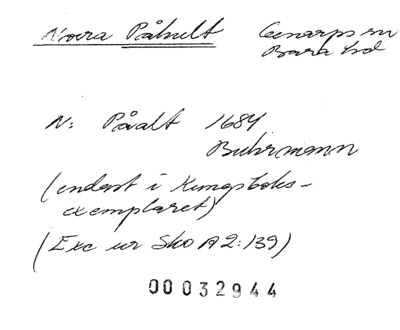 Norra Påhult Genarps sn
Bara hd
N: Påvalt 1684
Buhrmann
(endast i Kungsboks-
exemplaret)
(Exc ur Sko A 2:139)
00032944